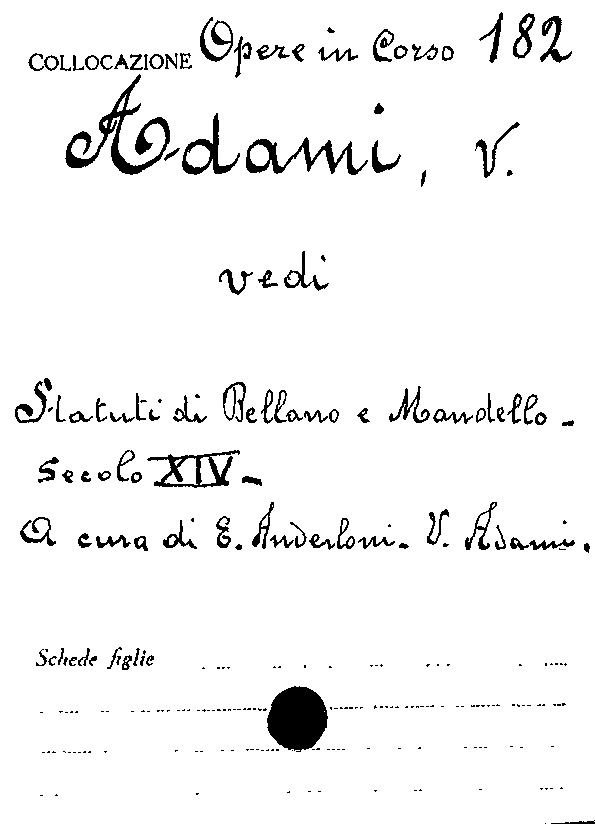 COLLOCAZIONE Opere in Corso 182
Adami, V.
vedi
Statuti di Bellano e Mandello -
Secolo XIV -
A cura di E. Anderloni - V. Adami.
Schede figlie